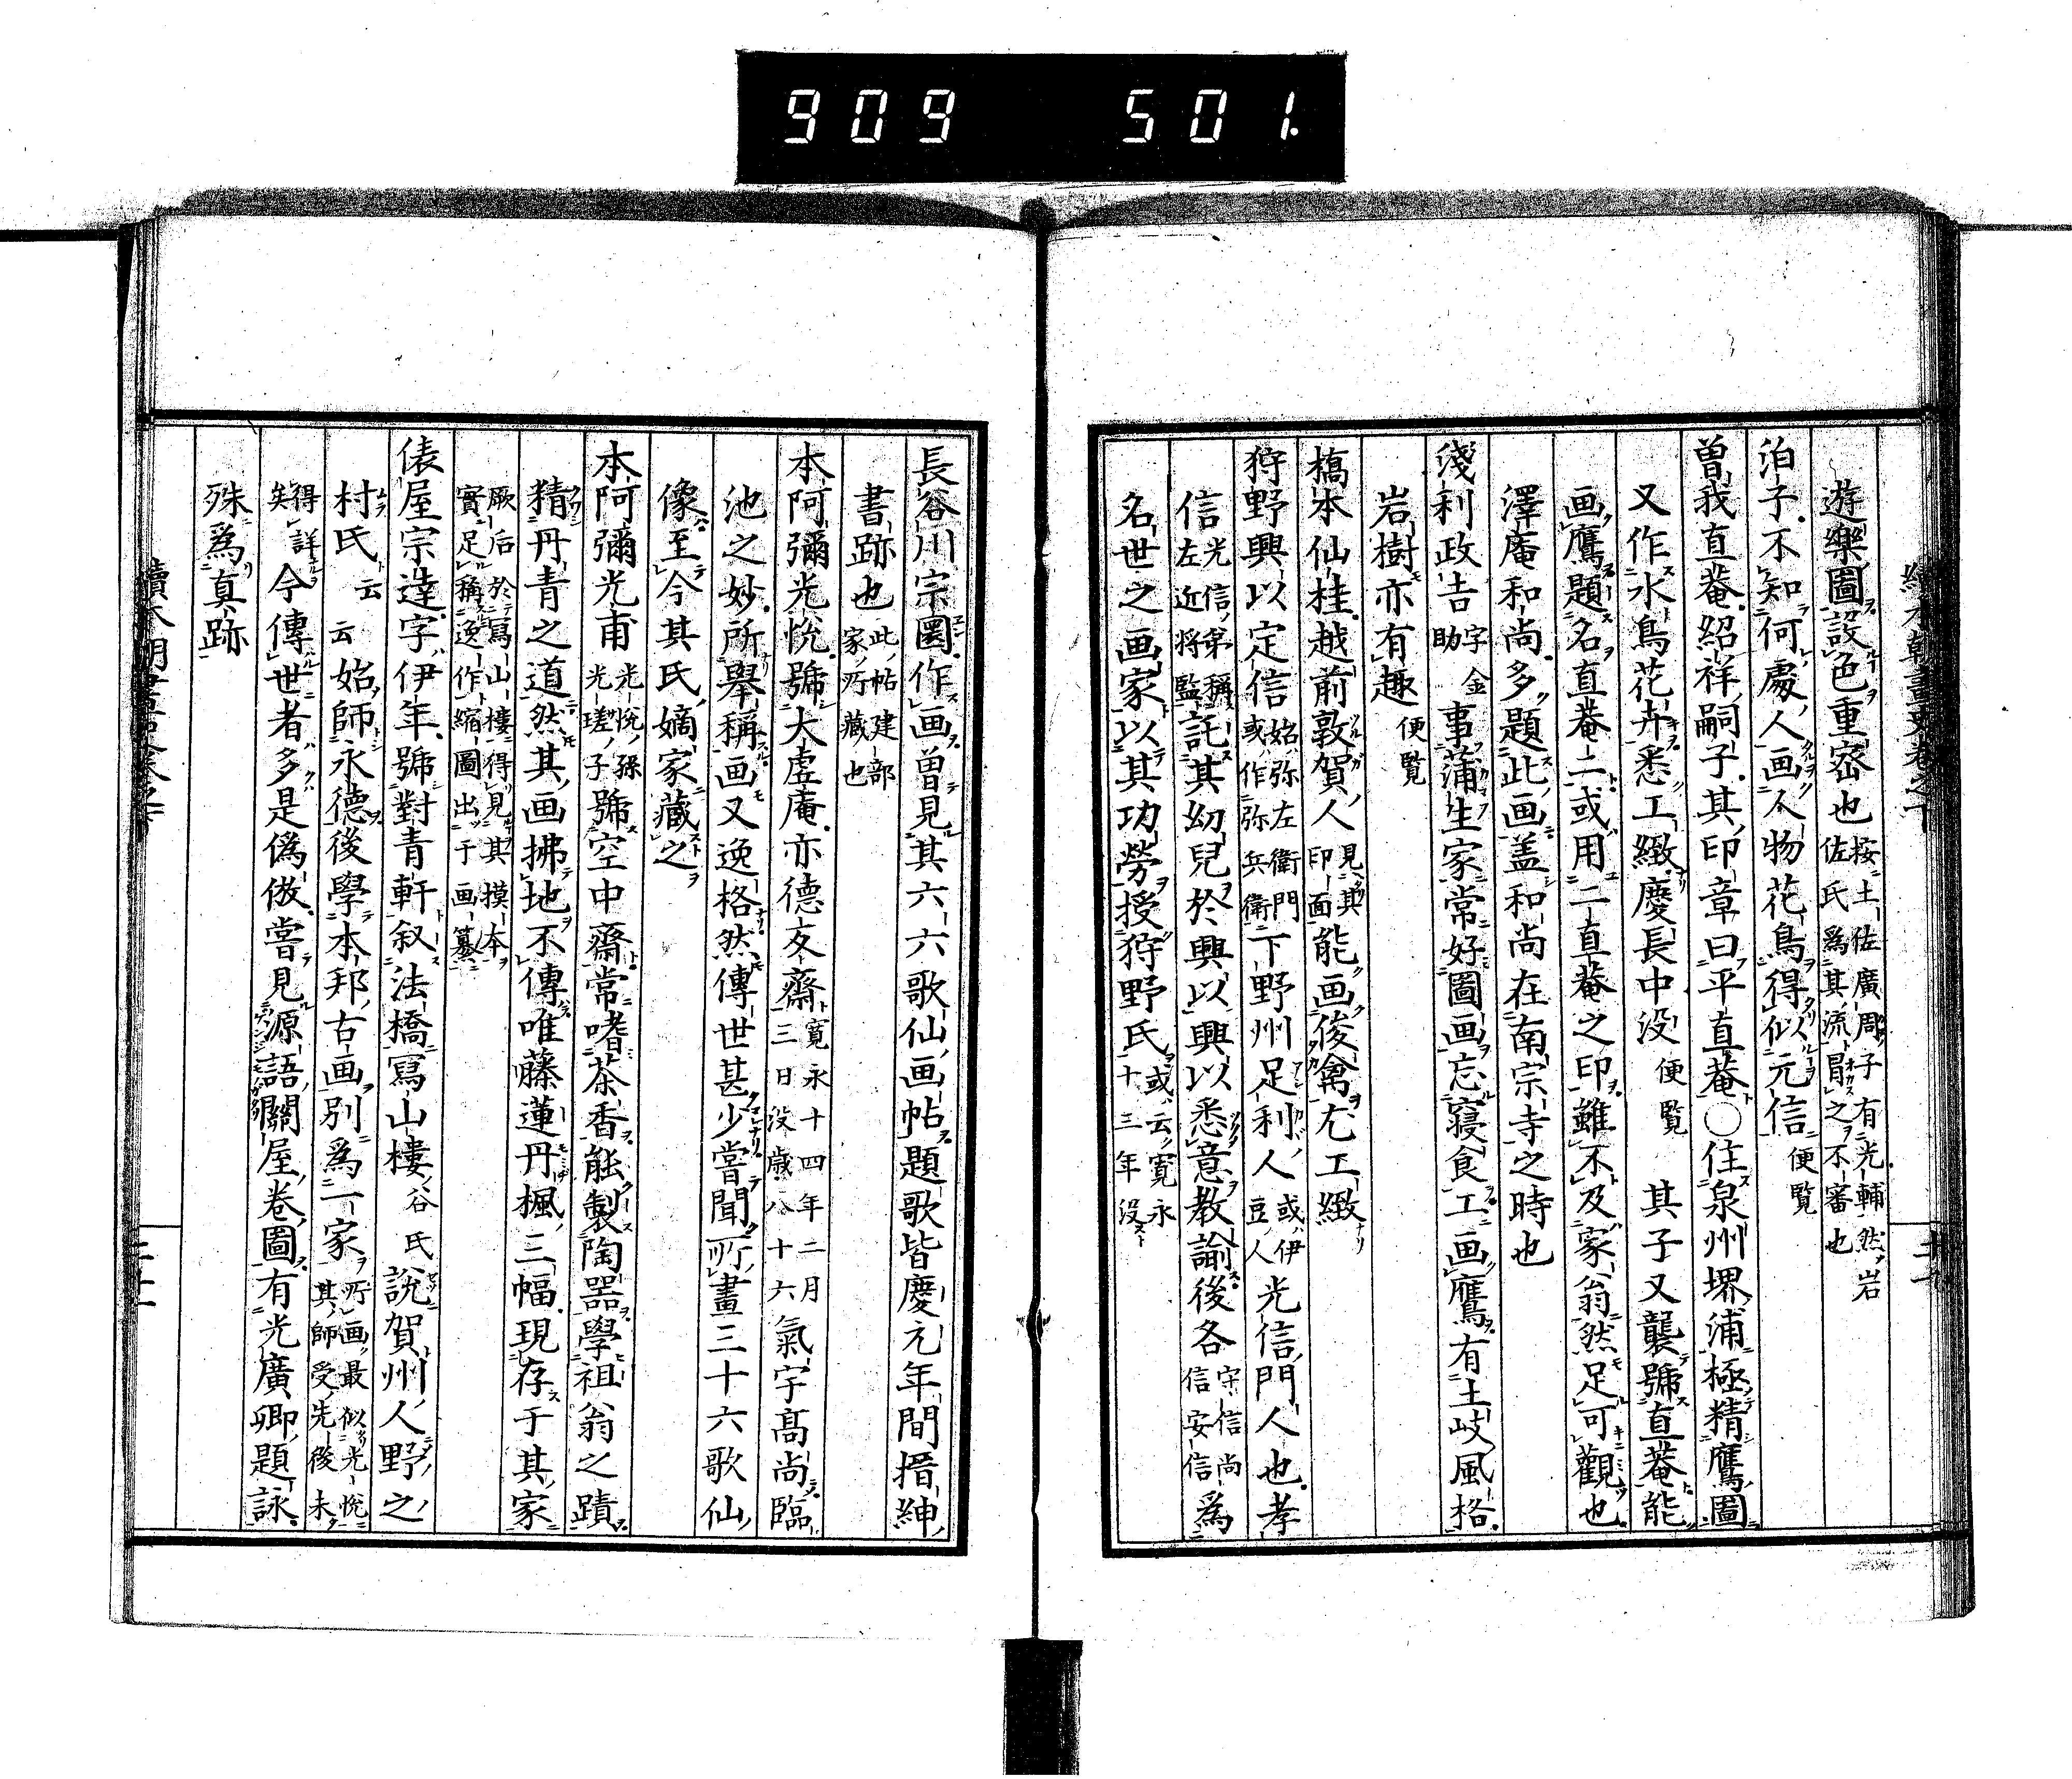 909 501.
續本朝畫史卷之下
遊樂圖設色重密也按土佐廣周子有光輔然岩佐氏爲其流冒之不審也
泊子不知何處人画人物花鳥得似元信便覧
曽我直菴紹祥嗣子其印章曰平直菴〇住泉州堺浦極精鷹圖
又作水鳥花卉悉工緻慶長中没便覧其子又襲號直菴能
画鷹題名直菴二或用二直菴之印雖不及家翁然足可觀也
澤庵和尚多題此画盖和尚在南宗寺之時也
淺利政吉字金助事蒲生家常好圖画忘寝食工画鷹有土岐風格
岩樹亦有趣便覧
橋本仙桂越前敦賀人見其印面能画俊禽尤工緻
狩野興以定信始弥左衛門或作弥兵衛下野州足利人或伊豆人光信門人也孝
信光信弟稱左近將監託其幼兒於興以興以悉意教諭後各守信尚信安信爲
名世之画家以其功勞授狩野氏或云寛永十三年没
長谷川宗圜作画曽見其六六歌仙画帖題歌皆慶元年間搢紳
書跡也此帖建部家所藏也
本阿彌光悅號大虛庵亦德友齋寛永十四年二月三日没歳八十六氣宇髙尚臨
池之妙所舉稱画又逸格然傳世甚少嘗聞所畫三十六歌仙
像至今其氏嫡家藏之
本阿彌光甫光悅孫光瑳子號空中齋常嗜茶香能製陶器學祖翁之蹟
精丹青之道然其画拂地不傳唯藤蓮丹楓三幅現存于其家
厥后於寫山樓得見其摸本實足稱逸作縮圖出于画纂
俵屋宗達字伊年號對青軒叙法橋寫山樓谷氏説賀州人野之
村氏云云始師永德後學本邦古画別爲一家所画最似光悅其師受先後未
得詳矣今傳世者多是偽倣嘗見源語關屋卷圖有光廣卿題詠
殊爲真跡
續本朝畫史卷之下